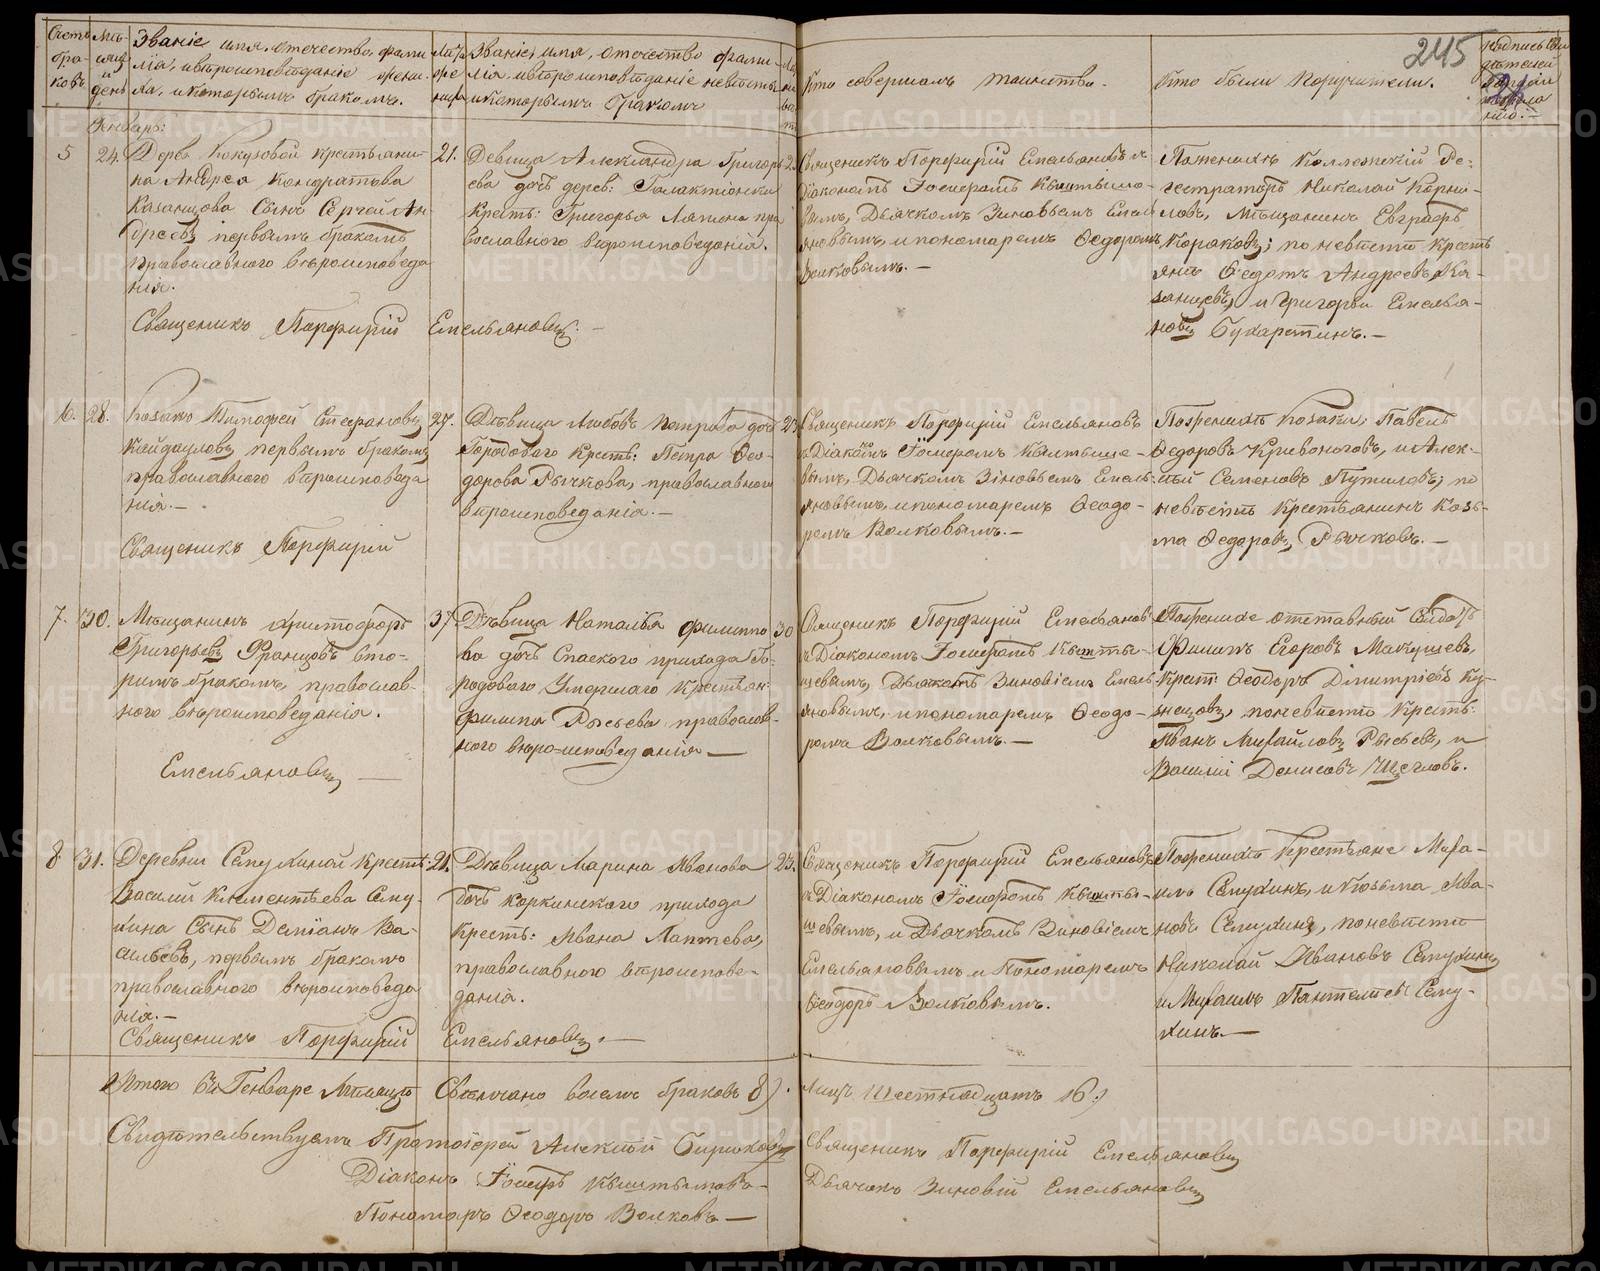 Счетъ браковъ
Мѣсяцъ и день
Званіе имя, отечество, фами-
лія, и вѣроисповѣданіе жени-
ха, и которымъ бракомъ.
Лѣта жениха
Званіе, имя, отечество фами-
лія, и вѣроисповѣданіе невѣсты
и которымъ бракомъ
Кто совершалъ таинство.
Кто были Поручители.
245
Генварь:
5
24.
Дерев: Кокузовой крестьяни-
на Андрея Кондратьева
Казанцова Сынъ Сергей Ан-
дреевъ первымъ бракомъ
православнаго вѣроисповеда
нія.
21.
Девица Александра Григорь
ева дочь дерев: Галактіонски
Крестъ: Григорья Ляпина пра
вославного вѣроисповеданія.
Священникъ Порфирій Емельяновъ с
Діакономъ Іосифомъ Кыштымо-
вымъ, Дьячкомъ Зиновьемъ Емель
яновымъ, и пономаремъ Ѳедоромъ
Волковымъ.—
По женихѣ Коллежскій Ре-
гестраторъ Николай Корни-
ловъ, Мѣщанинъ Евграфъ
Кораковъ; по невѣстѣ крест
янъ Ѳедотъ Андреевъ Ка-
занцевъ, и Григорьи Емелья-
новъ Бухаретинъ.—
Священикъ Порфирій Емельяновъ.—
6.
28.
Козакъ Тимофей Стефановъ
Кайдауловъ первымъ бракомъ
православного вѣроисповеда
нія.—
27.
Дѣвица Любовъ Петрова дочь
Городоваго Крестъ: Петра Ѳео-
дорова Рычкова, православного
вѣроисповеданія.—
23
Священикъ Порфирій Емельяновъ
с Діакономъ Іосифомъ Кыштыме-
вымъ, Дьячкомъ Зіновьемъ Емель-
яновымъ и пономаремъ Ѳеодо-
ромъ Волковымъ.—
По женихѣ козаки: Павелъ
Ѳедоровъ Кривоноговъ, и Алек-
сѣй Семеновъ Путиловъ; по
невѣстѣ Крестьянинъ Козь-
ма Ѳедоровъ Рычковъ.—
Священикъ Порфирій
7.
30.
Мѣщанинъ Христофоръ
Григорьевъ Францовъ вто-
рымъ бракомъ, православ-
ного вѣроисповеданія.
37
Дѣвица Наталья Филиппо
ва дочь Спаского прихода Го-
родоваго Умершаго Крестьян:
Филипа Рысьева православ-
ного вѣроисповеданія—
30
Священикъ Порфирій Емельяновъ
с Діакономъ Іосифомъ Кышты-
мевымъ, Дьячкомъ Зиновіемъ Емель-
яновымъ, и пономаремъ Ѳеодо-
ромъ Волковымъ.—
По женихѣ отставный Солдатъ
Филипъ Егоровъ Макушевъ,
Крест: Ѳеодоръ Димитріевъ Ку-
знецовъ, по невѣстѣ Кресть:
Иванъ Михайловъ Рысьевъ, и
Василій Денисовъ Щегловъ.
Емельяновъ—
8.
31.
Деревни Семухиной Кресть:
Василія Клементьева Сему-
хина Сынъ Деміанъ Ва-
сильевъ, первымъ бракомъ
православного вѣроисповеда
нія.—
21.
Дѣвица Марина Иванова
дочь Коркинскаго прихода
Кресть: Ивана Лаптева,
православного вѣроиспове-
данія.
23.
Священикъ Порфирій Емельяновъ
с Діакономъ Іосифомъ Кышты-
мевымъ, и Дьячкомъ Зиновіемъ
Емельяновымъ и Пономаремъ
Ѳеодоръ Волковымъ.
По женихѣ Крестьяне Миха-
илъ Семухинъ, и Козьма Ива-
новъ Семухинъ, по невѣстѣ
Николай Ивановъ Семухинъ
и Михаилъ Пантелѣевъ Сему-
хинъ.—
Священикъ Порфирій Емельяновъ.—
Итого въ Генваре Мѣсяцѣ Свѣнчано восемь браковъ 8). Лицъ Шестнадцать 16.)
Свидѣтельствуемъ Протоіерей Алексѣй Бирюковъ
Священикъ Порфирій Емельяновъ
Діаконъ Іосифъ Кыштымовъ-
Дьячекъ Зиновій Емельяновъ
Пономарь Ѳеодоръ Волковъ—
METRIKI.GASO-URAL.RU